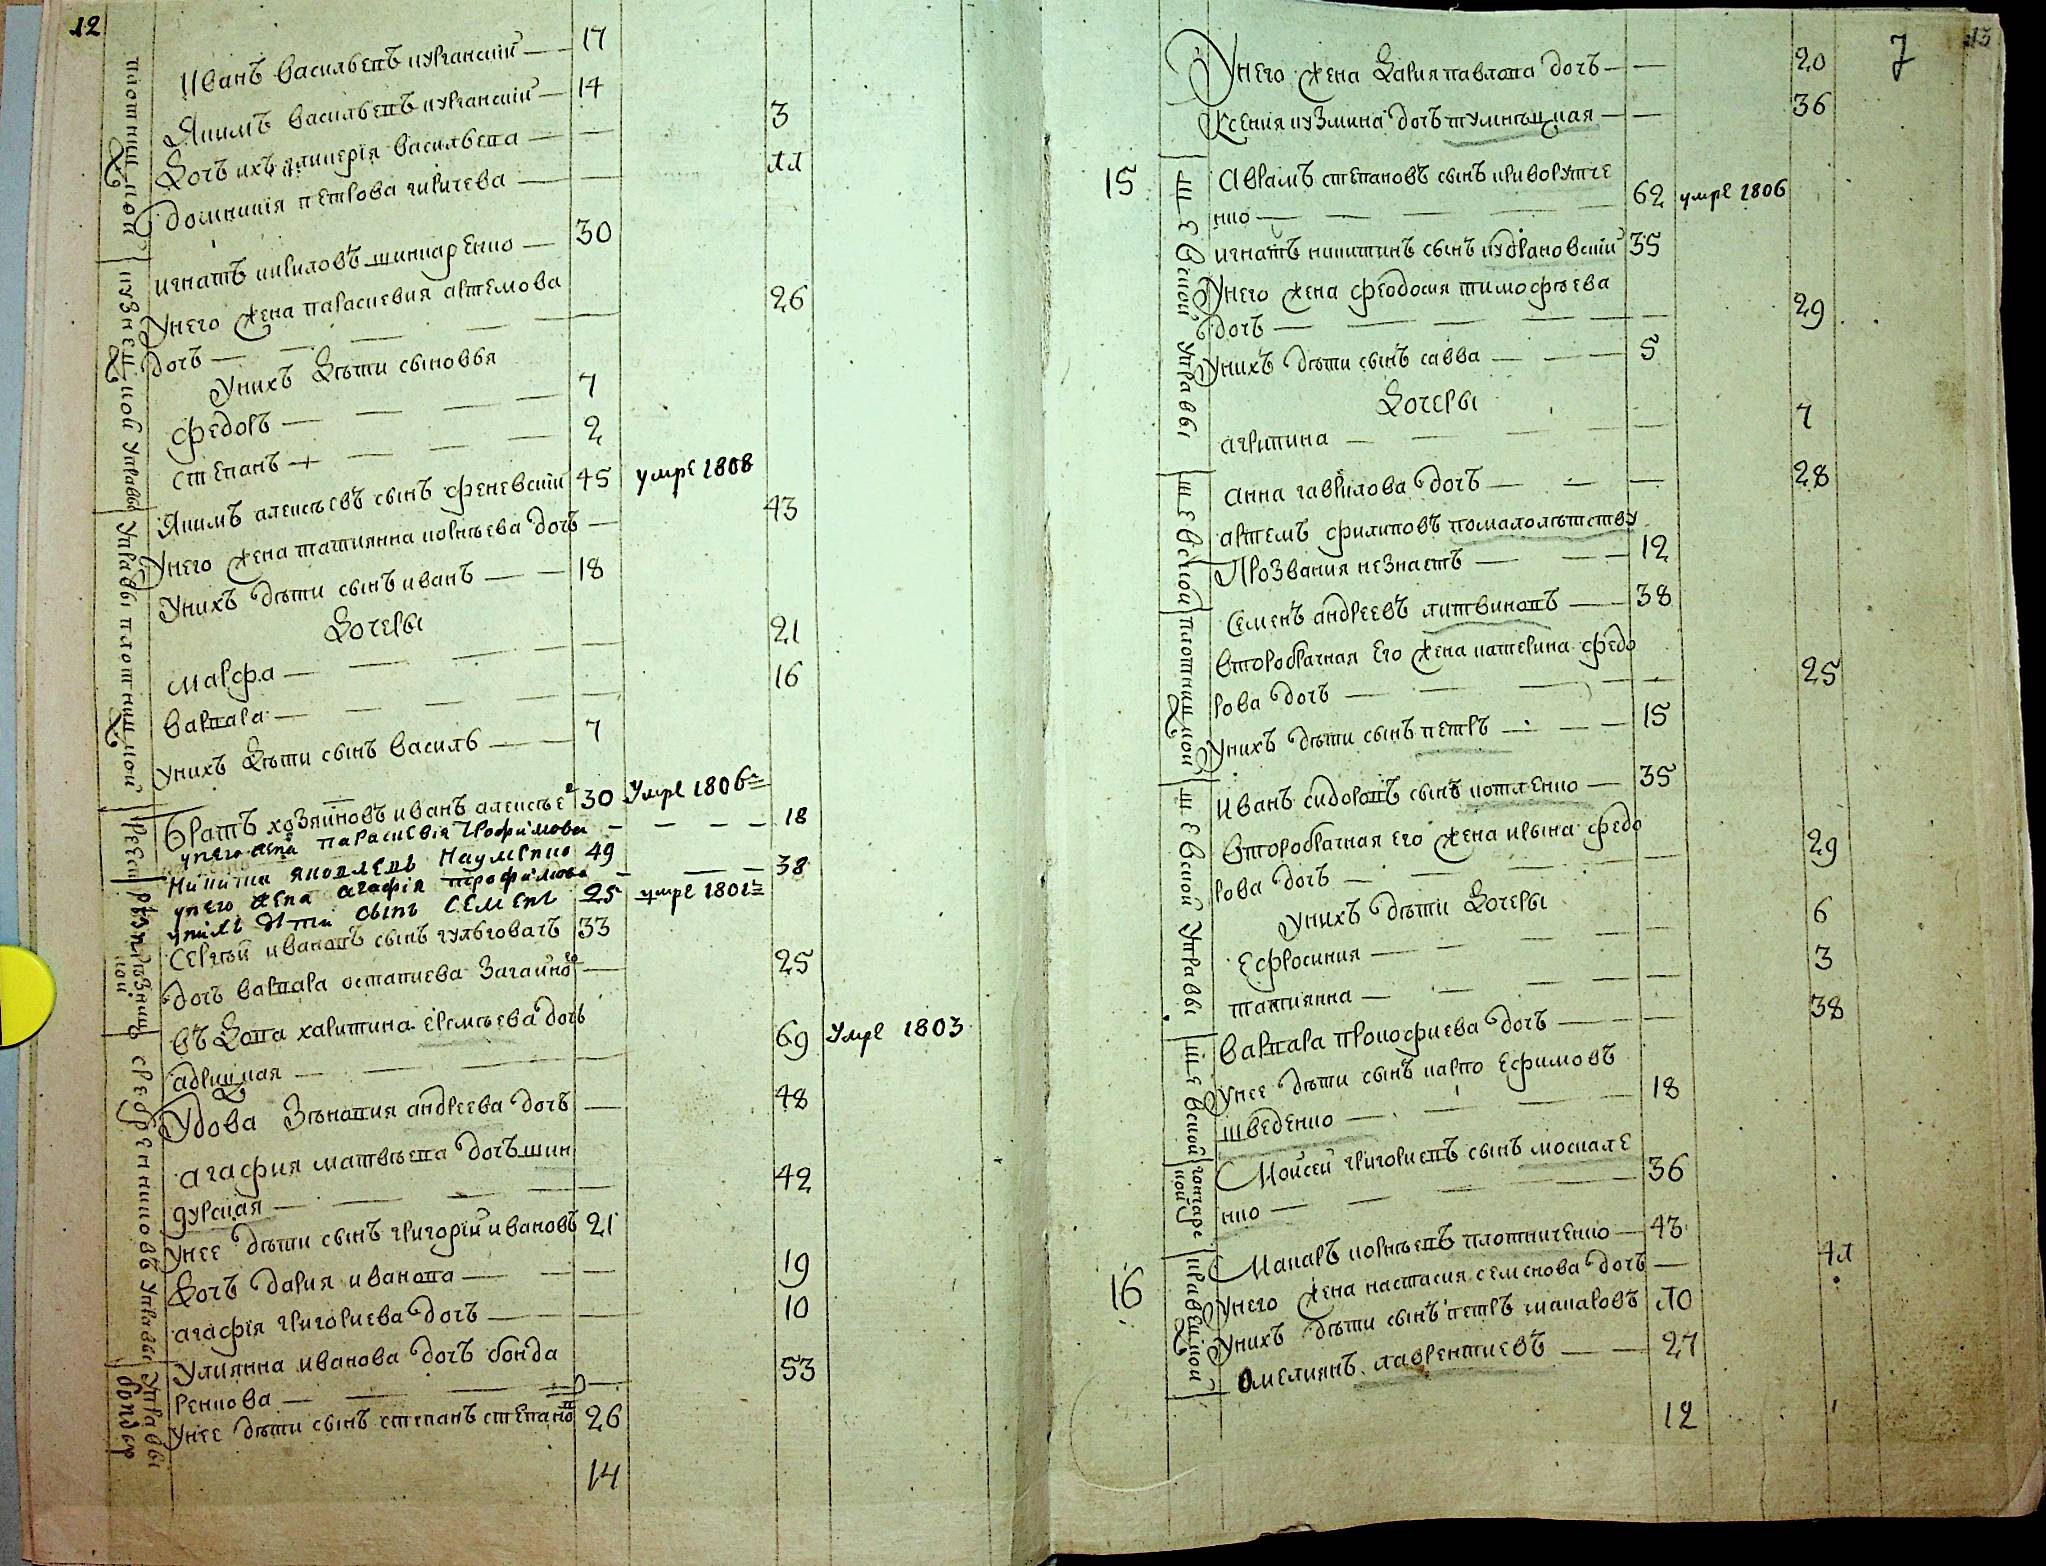 12
Иванъ васильевъ курганскій — 17
Якимъ васильевъ курганскій — 14
Дочъ ихъ гликерія васильева — 3
Домникія петрова гиричева —
игнатъ кириловъ шинкаренко — 30
Унего жена параскевия артемова
дочъ — 26
Унихъ Дѣти сыновья
федоръ — 7
степанъ — 2
Якимъ алексѣевъ сынъ феневский 45 умре 1808
Унего жена татиянна корнѣева дочъ — 43
Унихъ дѣти сынъ иванъ — 18
Дочеры
марфа — 21
варвара — 16
Унихъ Дѣти сынъ василь — 7
братъ хозяйновъ иванъ алексѣе 30 Умре 1806
унего жена параскевія трофимова — 18
Никита яковлевъ Науменко 49
унего жена агафія трофимова — 38
унихъ дѣти сынъ семенъ 25 умре 1801
Сергѣй ивановъ сынъ гульговатъ 33
дочъ варвара остапиева Загайно — 25
въ Дова харитина еремѣева дочъ
адрицкая — 69 Умре 1803
Удова Зѣновия андреева дочъ — 48
агафия матвѣева дочъ шин
дурская — 42
Унее дѣти сынъ григорій ивановъ 21
Дочъ дария иванова — 19
агафія григориева дочъ — 10
Улиянна иванова дочъ бонда
ренкова — 53
Унее дѣти сынъ степанъ степано 26
14
плотницкой
кузнецкой Управы
Управы плотницкой
рѣзницкой
сребренниковъ Управы
Управы бондар
7 13
Унего жена Дария павлова дочъ — 20
Ксения кузмина дочъ тумницкая — 36
15 Аврамъ степановъ сынъ криворутче
нко — 62 умре 1806
игнатъ никитинъ сынъ кудрановский 35
Унего жена феодосия тимофѣева
дочъ — 29
Унихъ дѣти сынъ савва — 5
Дочеры
агрипина — 7
анна гаврилова дочъ — 28
артемъ филиповъ помалолѣтству
Прозвания незнаетъ — 12
Семенъ андреевъ литвиновъ — 38
второбрачная Его жена катерина федо
рова дочъ — 25
Унихъ дѣти сынъ петръ — 15
Иванъ сидоровъ сынъ котленко — 35
Второбрачная его жена ирына федо
рова дочъ — 29
Унихъ дѣти Дочеры
Ефросиния — 6
татиянна — 3
варвара прокофиева дочъ — 38
Унее дѣти сынъ карпо Ефимовъ
шведенко — 18
Мойсей григориевъ сынъ москале
нко — 36
16 Макаръ корнѣевъ плотниченко — 43
Унего жена настасия семенова дочъ —
Унихъ дѣти сынъ петръ макаровъ
Омелиянъ лаврентиевъ — 27
12
шевской Управы
шевской
плотницкой
шевской Управы
шевской
гончарской
кравецкой